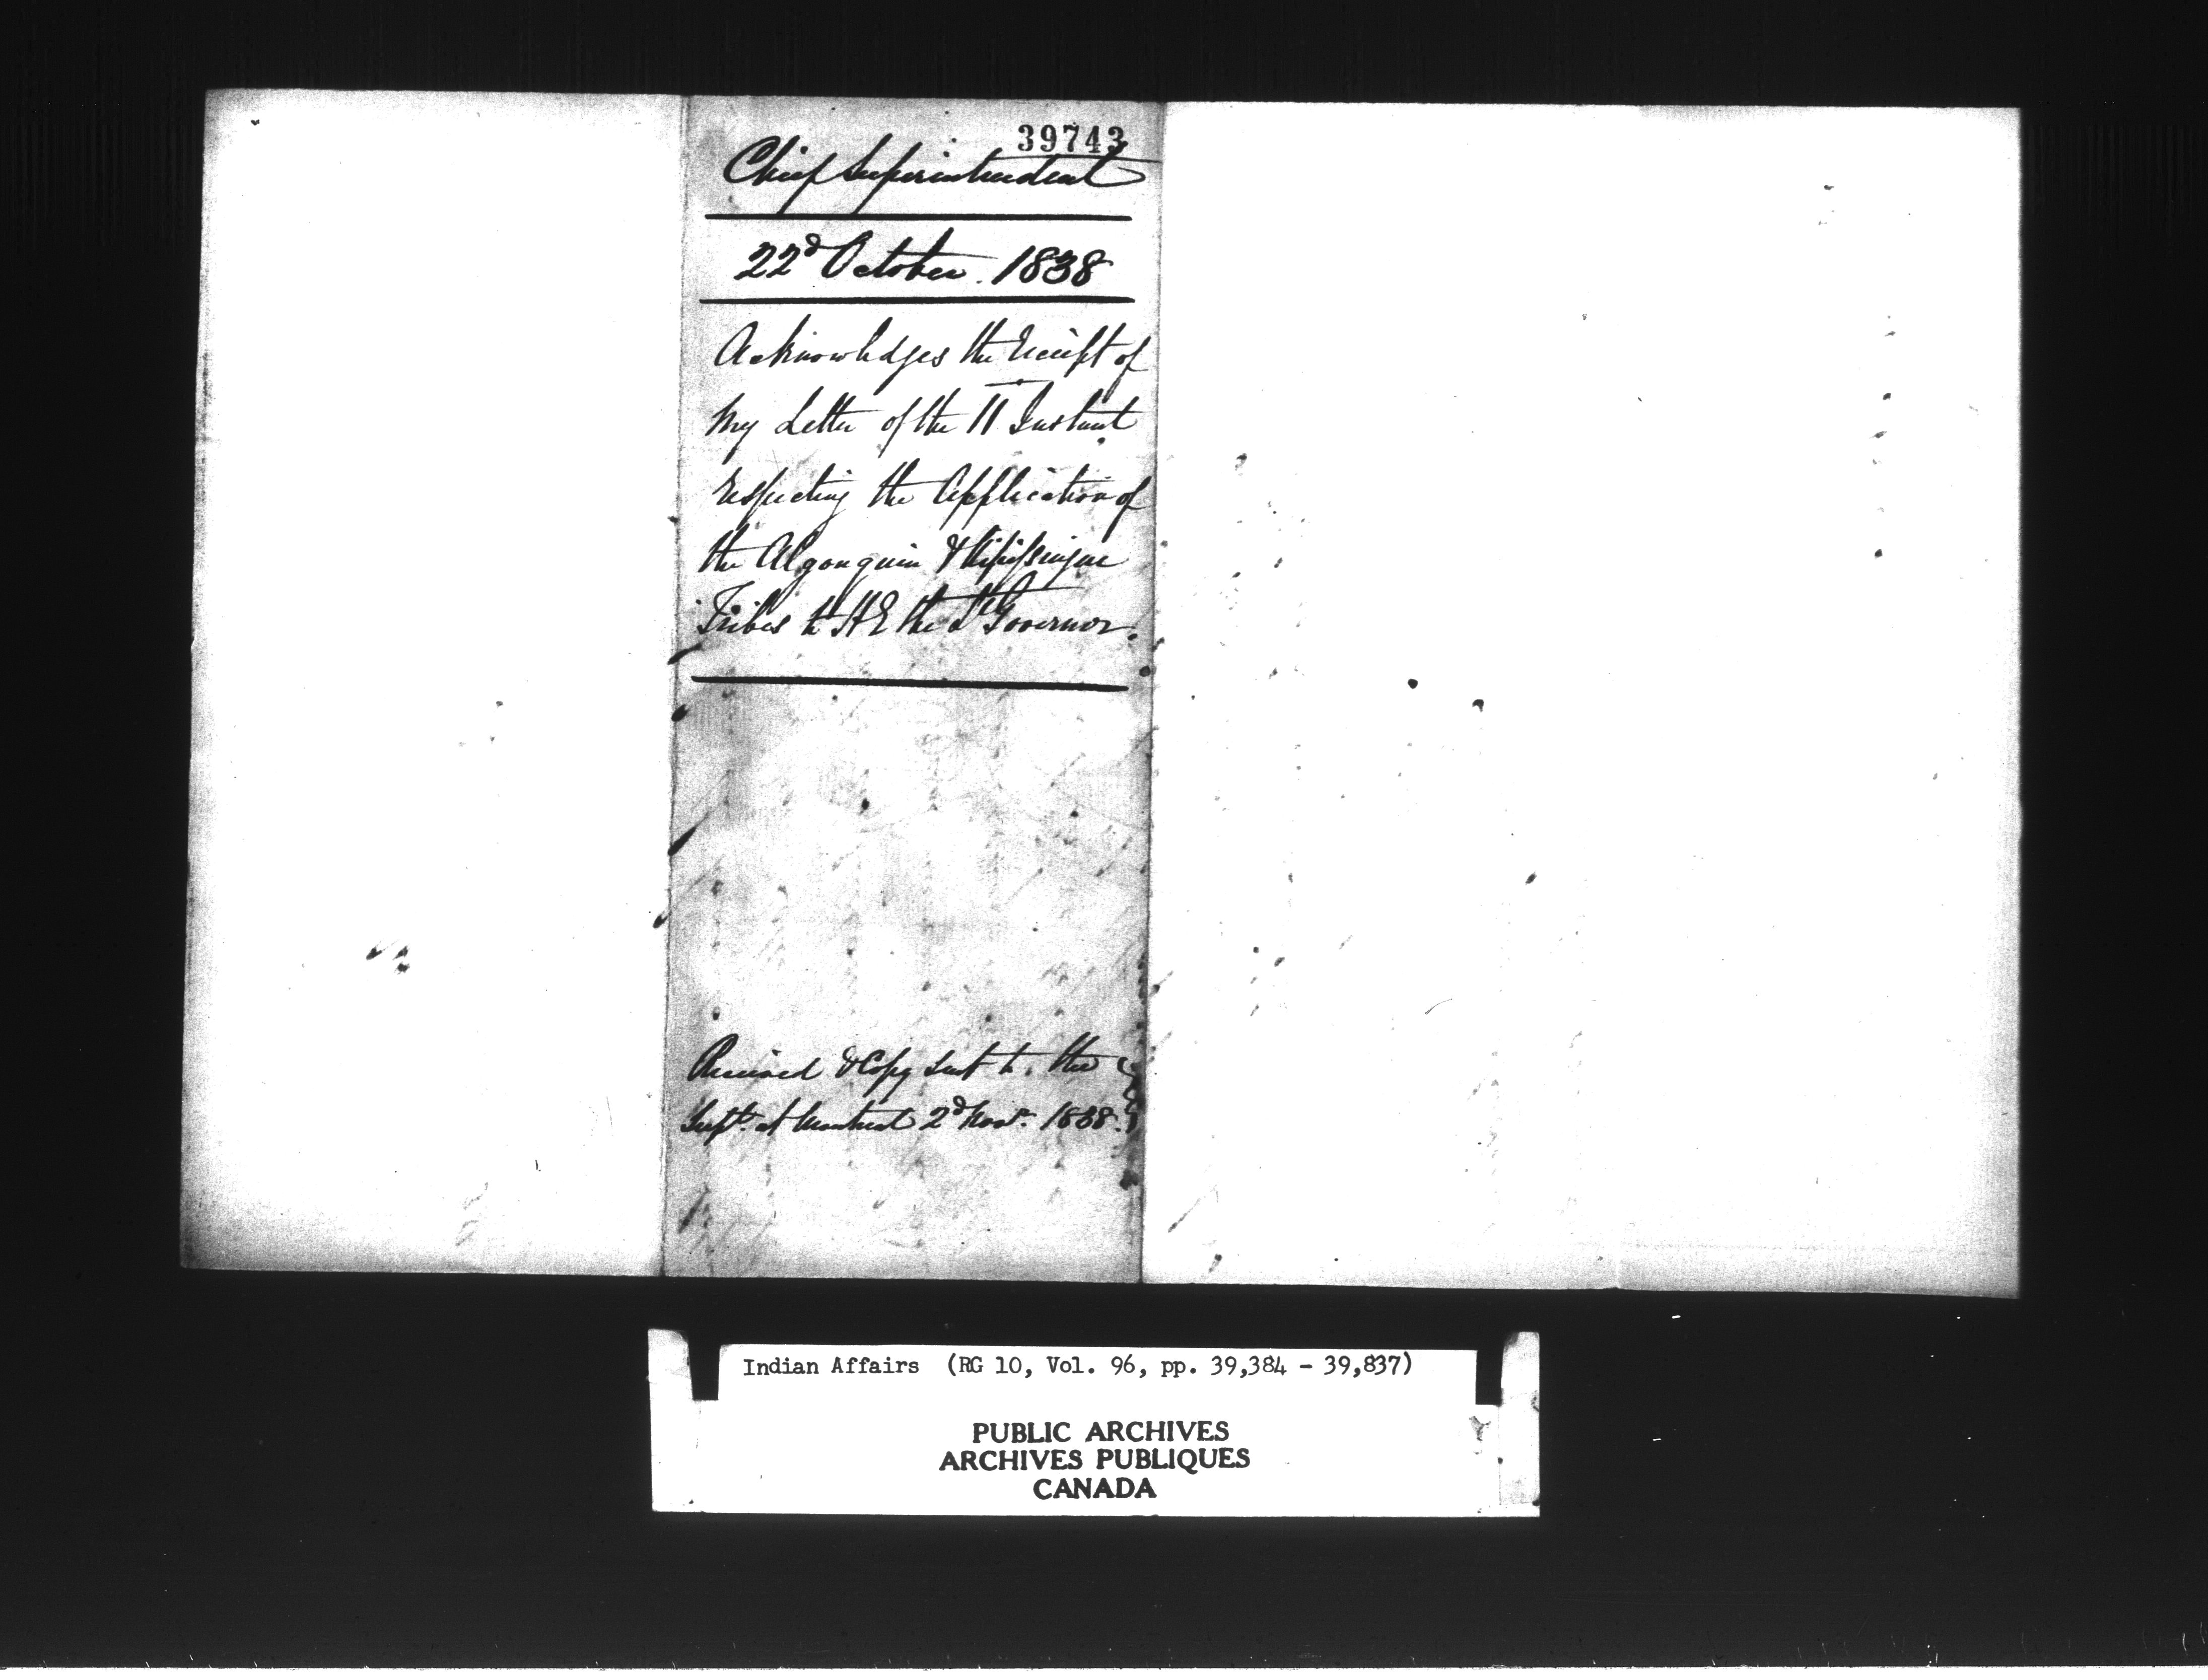 39743
Chief Superintendent
22d October. 1838
Acknowledges the receipt of
my Letter of the 11 Instant
respecting the Application of
the Algonquin & Nipissingue
Tribes to H E the Lt Governor.
Received & Copy sent to the
Supt. at Montreal 2d Novr. 1838.
Indian Affairs (RG 10, Vol. 96, pp. 39,384 - 39,837)
PUBLIC ARCHIVES
ARCHIVES PUBLIQUES
CANADA